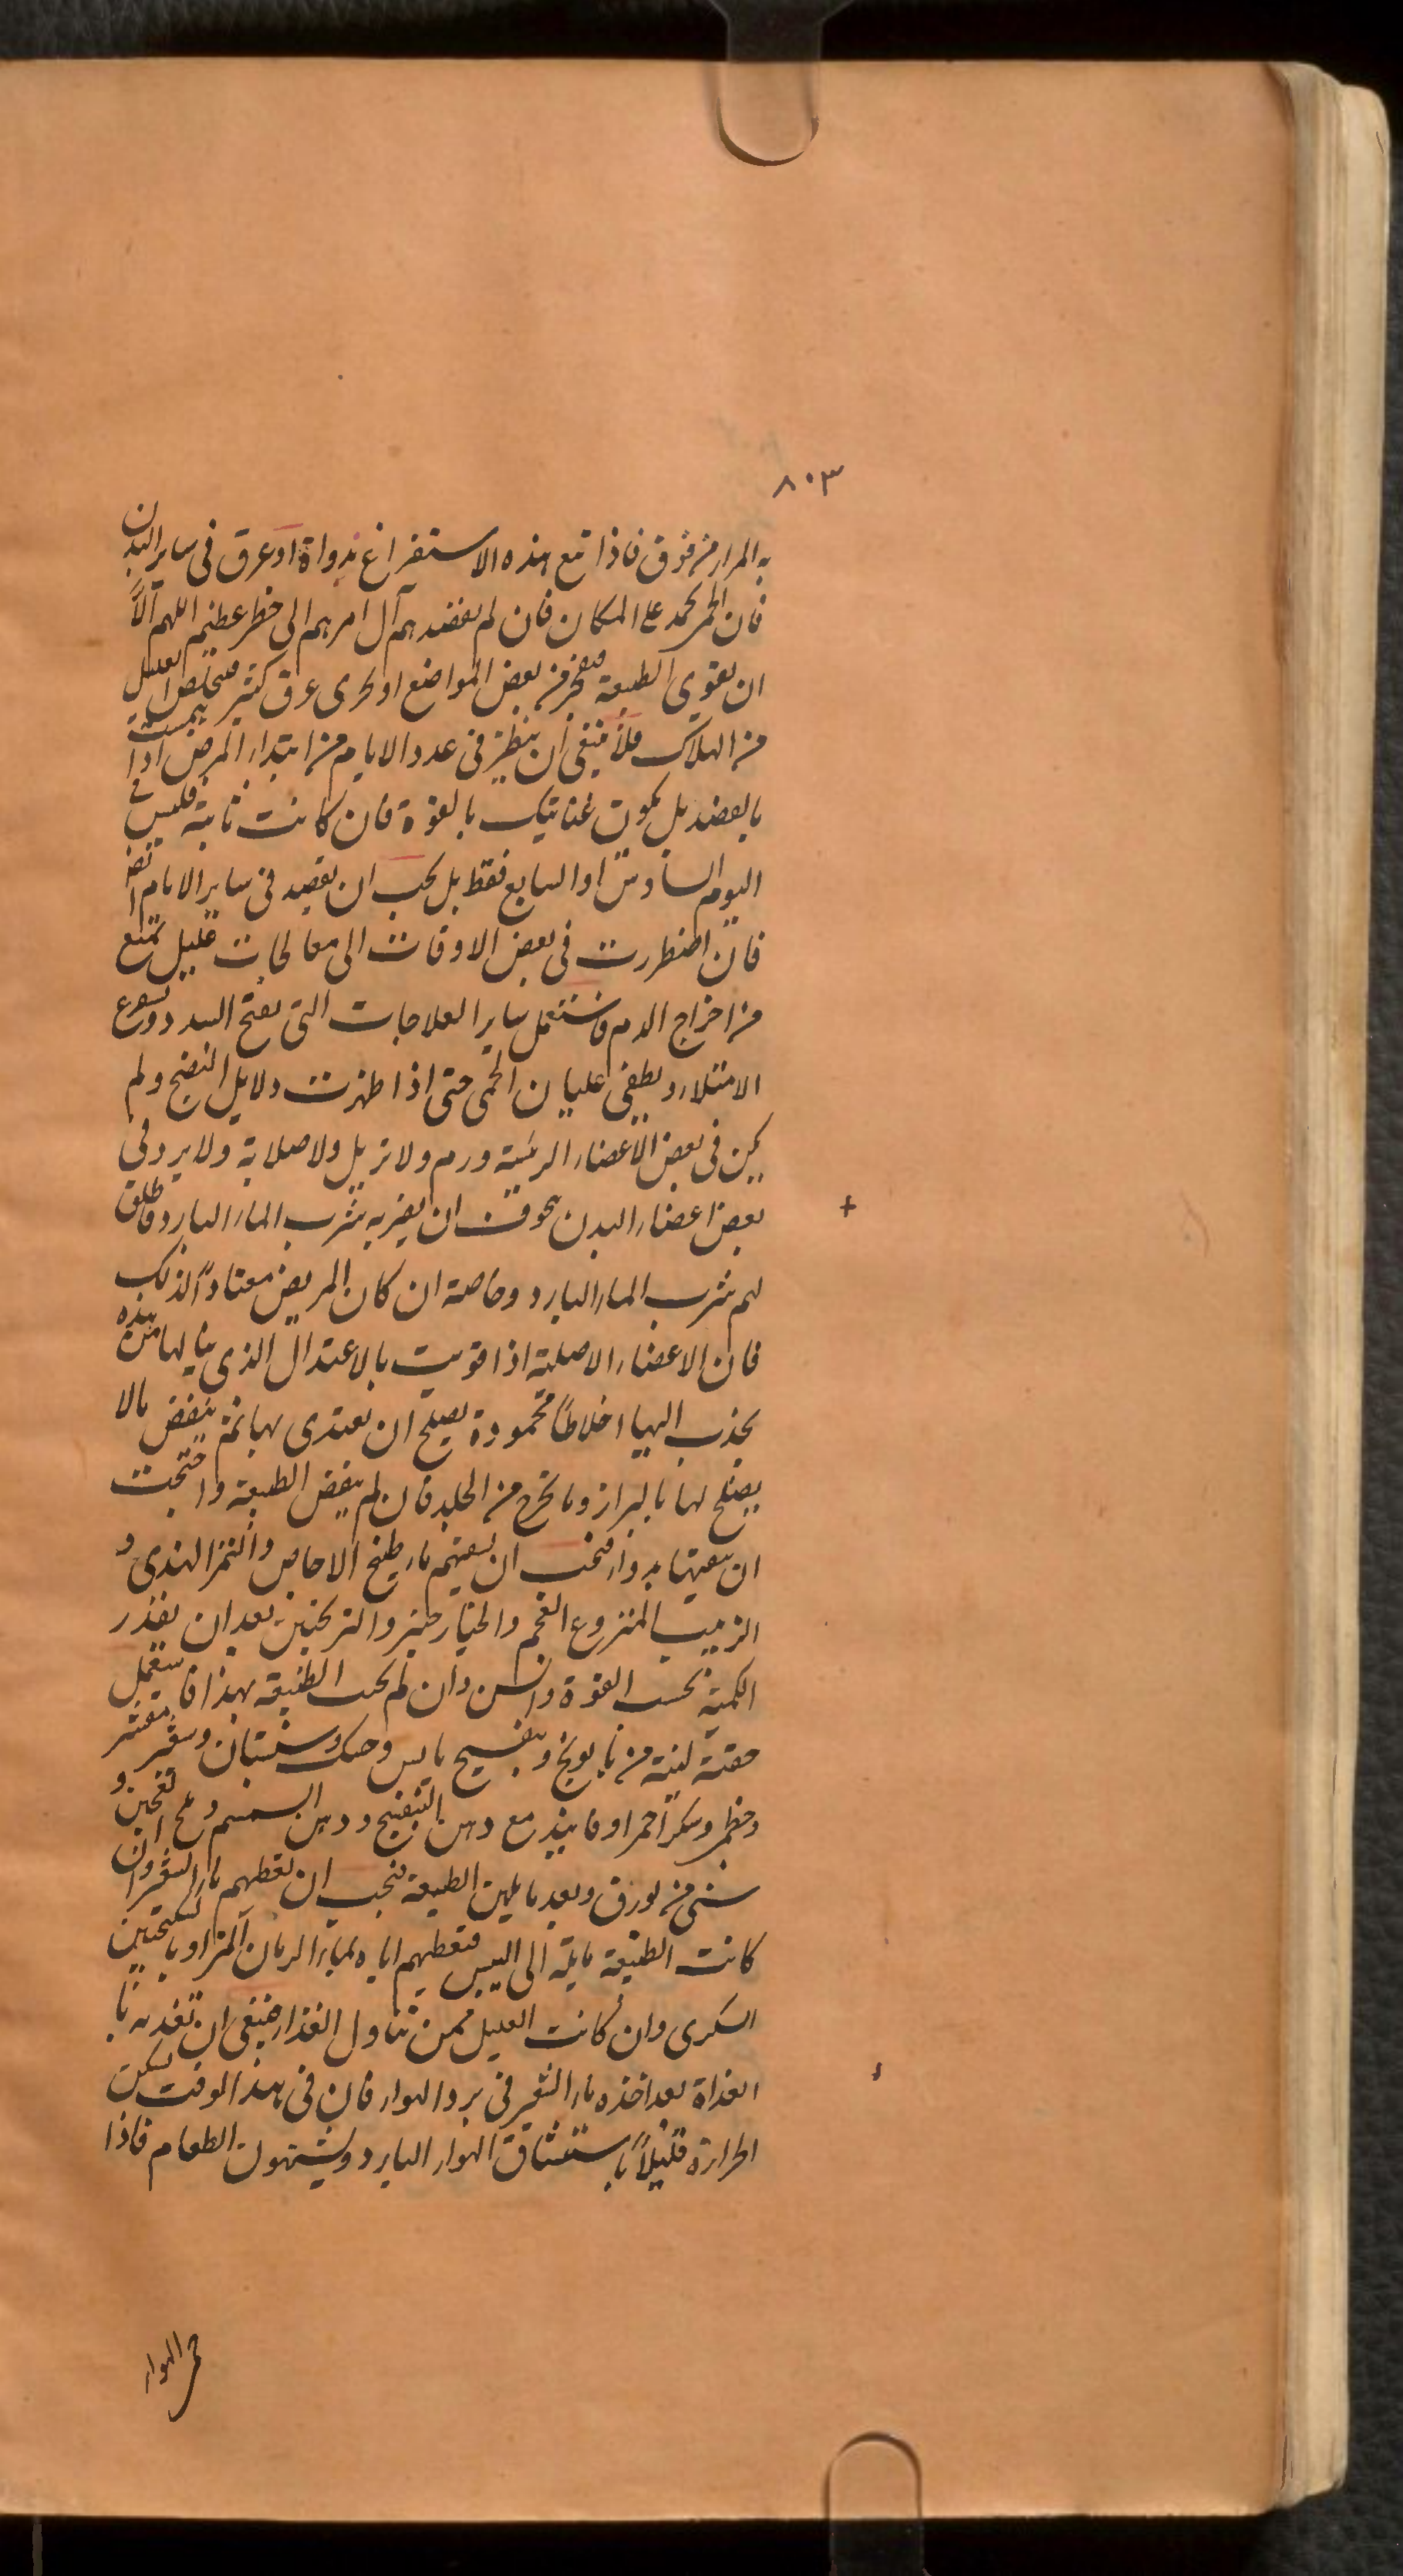 ٨٠٣
به المرار من فوق فاذا تبع هذه الاستفراغ نداوة او عرق فى ساير البدن
فان الحمى تخمد على المكان فان لم يفصد هم آل امرهم الى خطر عظيم اللهم الَّا
ان تقوى الطبيعة فتفجر من بعض المواضع او يجرى عرق كثير فيتخلص العليل
من الهلاك فلا ينبغى ان ينظر فى عدد الايام من ابتداء المرض اذا هممت
بالفصد بل يكون عنايتك بالقوة فان كانت ثابتة فليس فى
اليوم السادس او السابع فقط بل يجب ان يفصد فى ساير الايام ايضا
فان اضطررت فى بعض الاوقات الى معالجات عليل تمنع
من اخراج الدم فاستعمل ساير العلاجات التى يفتح السدد و
الامتلاء و يطفى غليان الحمى حتى اذا ظهرت دلايل النضج ولم
يكن فى بعض الاعضاء الرئيسة ورم ولا تربل ولا صلابة ولا برد فى
بعض اعضاء البدن يخوف ان يضر به شرب الماء البارد فاطلق
لهم شرب الماء البارد وخاصة ان كان المريض معتادًا لذلك
فان الاعضاء الاصلية اذا قويت بالاعتدال الذى ينالها من هذه
يجذب اليها اخلاطًا محمودة يصلح ان يغتذى بها ثم ينفض مالا
يصلح لها بالبراز وما يخرج من الجلد فان لم ينفض الطبيعة واحتجت
ان تعينها بدواء فيجب ان يسقيهم ماء طبيخ الاجاص والتمر الهندى و
الزبيب المنزوع العجم والخيار شنبر والترنجبين بعد ان يقدر
الكمية بحسب القوة والسن وان لم يجب الطبيعة بهذا فاستعمل
حقنة لينة من بابونج وبنفسج يابس وحسك وسبستان وشعير مقشر
وخطمى وسكر احمر او فانيذ مع دهن البنفسج ودهن السمسم وملح العجين و
شئ من بورق وبعد ما يلين الطبيعة فيجب ان تعطيهم ماء الشعير وان
كانت الطبيعة مايلة الى اليبس فتعطيهم اياه بماء الرمان المز او بالسكنجبين
السكرى وان كانت العليل ممن تناول الغذاء فينبغى ان تغذيه با
لغداة بعد اخذه ماء الشعير فى برد الهواء فان فى هذا الوقت يسكن
الحرارة قليلاً باستنشاق الهواء البارد ويشتهون الطعام فاذا
حر الهواء